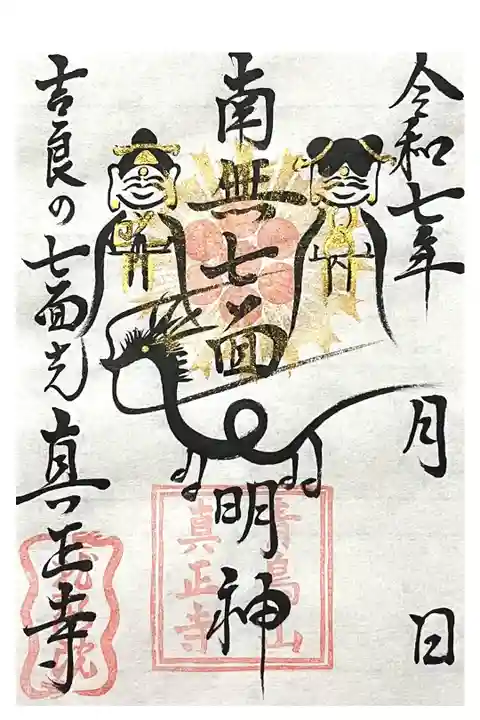 令和七年 月 日
南無七面
明神
吉良の七面さん
真正寺
青鳥山
真正寺